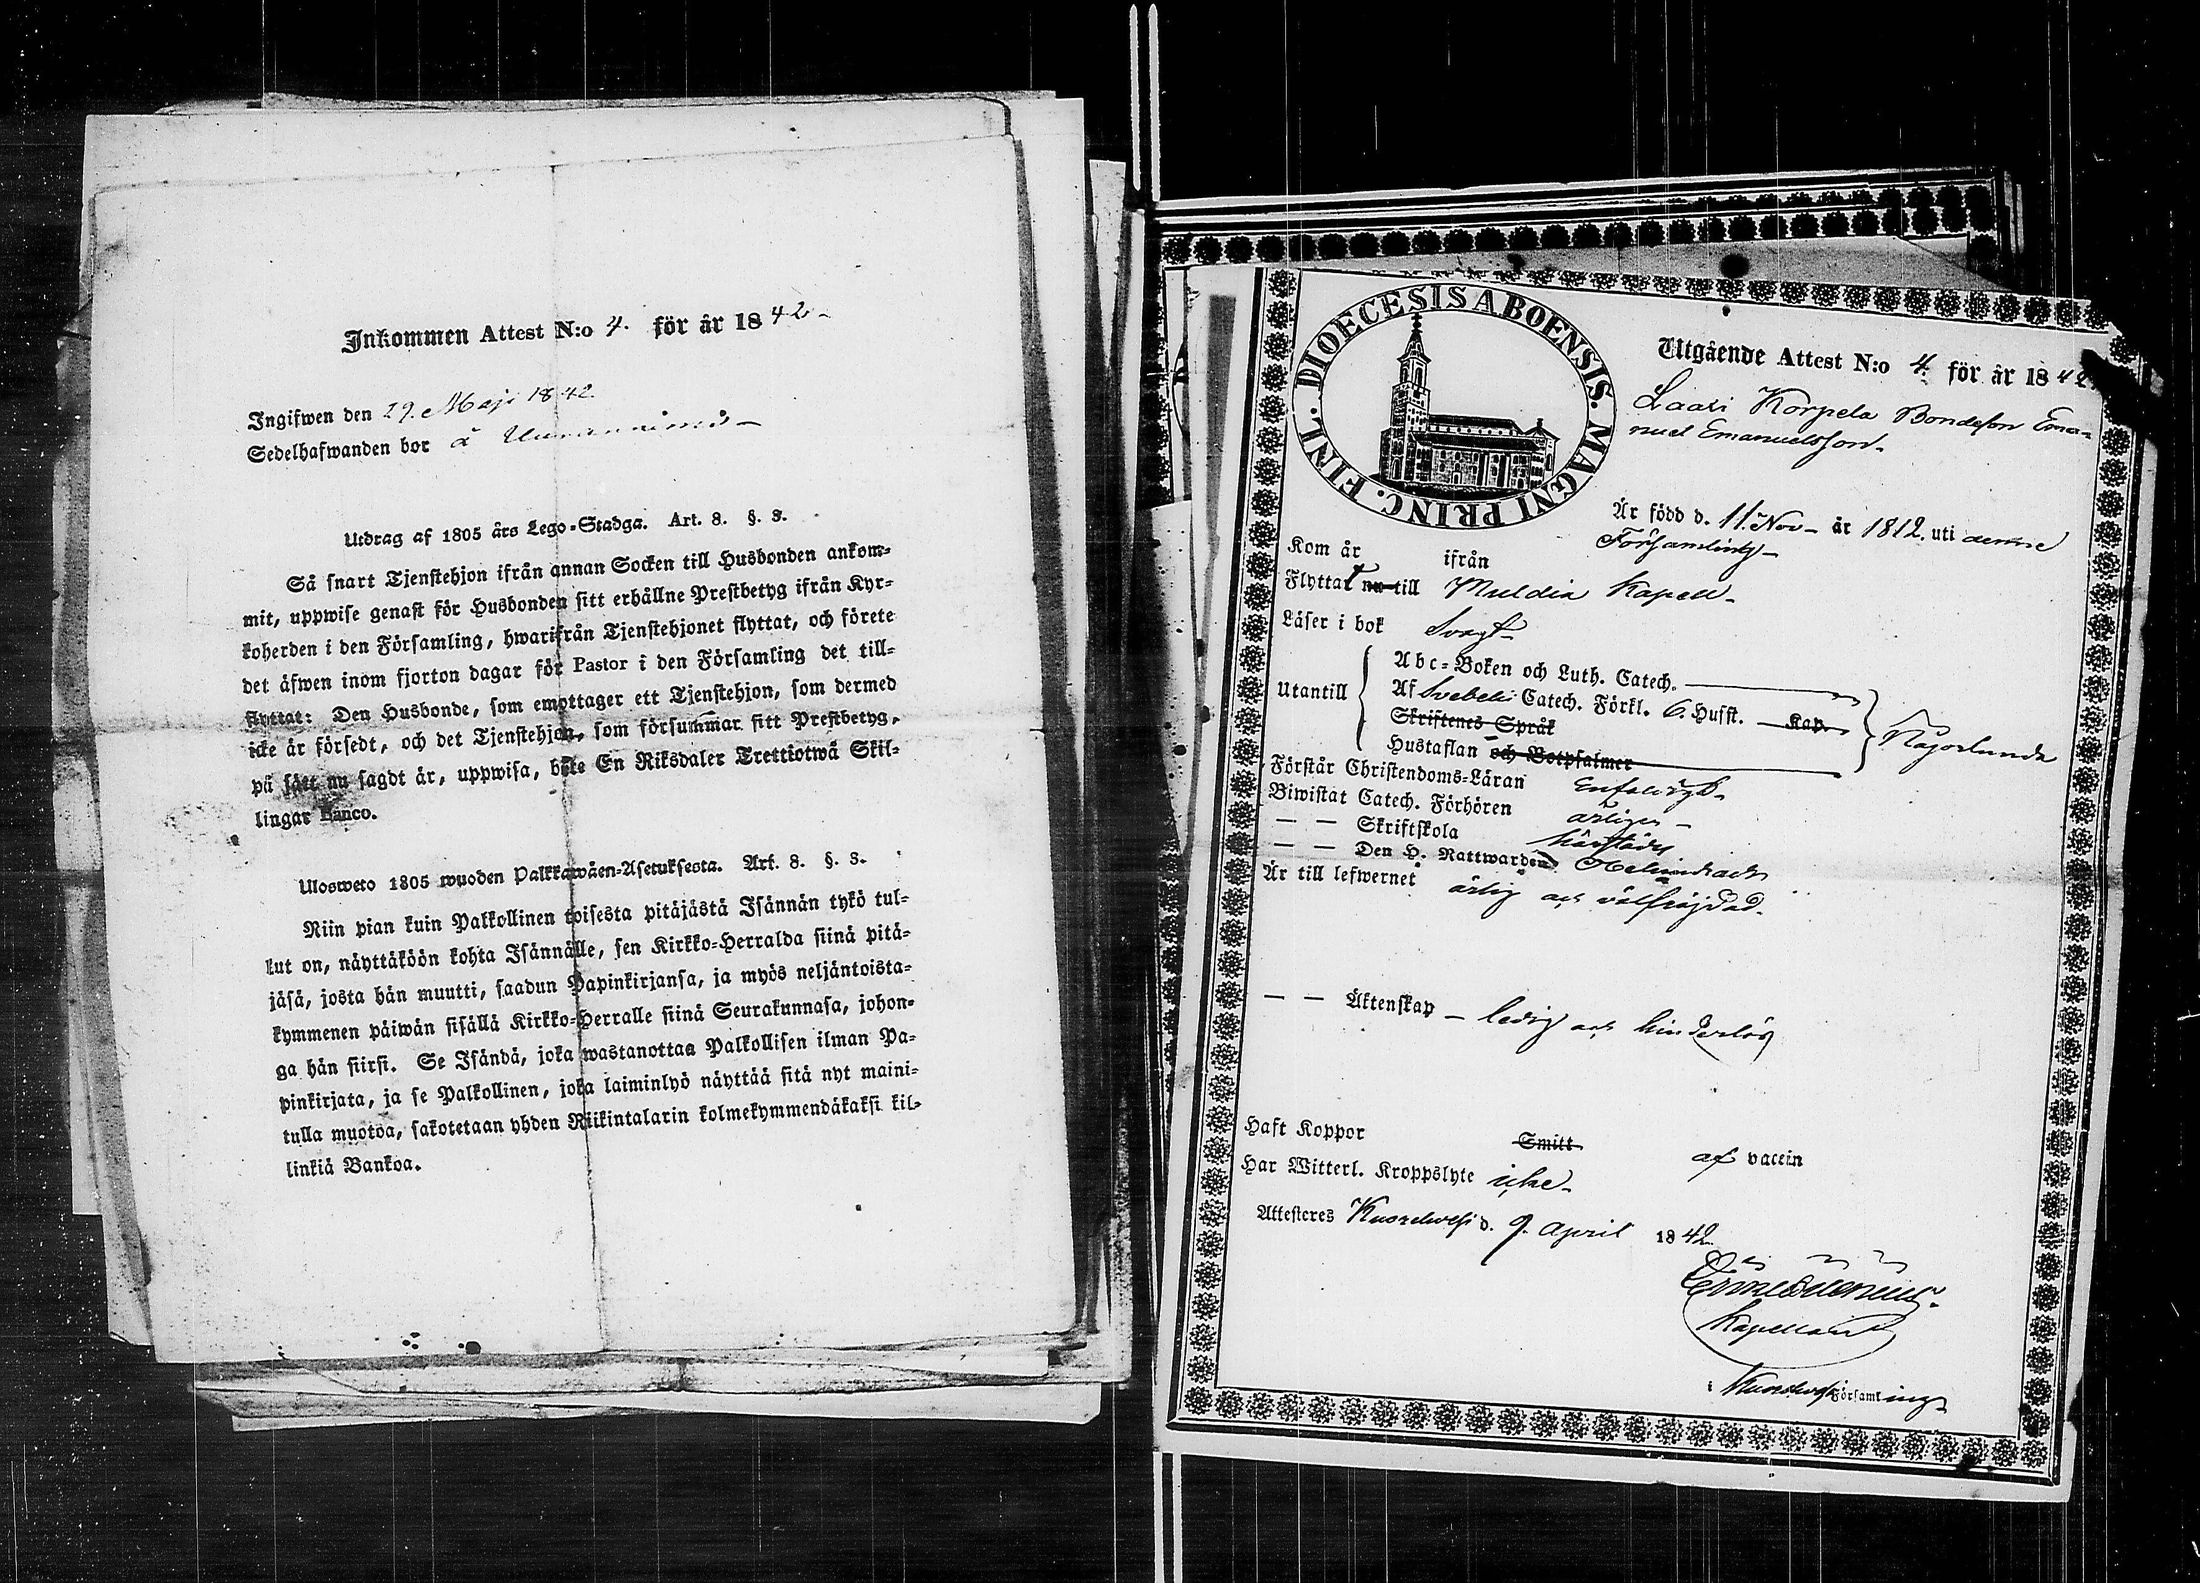 Inkommen Attest N:o 4. för år 1842-
Ingifwen den 29. Maji 1842.
Sedelhafwanden bor å
Utdrag af 1805 års Lego-Stadga. Art. 8. §. 3.
Så snart Tjenstehjon ifrån annan Socken till Husbonden ankom-
mit, uppwise genast för Husbonden sitt erhållne Prestbetyg ifrån Kyr-
koherden i den Församling, hwarifrån Tjenstehjonet flyttat, och förete
det äfwen inom fjorton dagar för Pastor i den Församling det till-
flyttat: Den Husbonde, som emottager ett Tjenstehjon, som dermed
icke är försedt, och det Tjenstehjon, som försummar sitt Prestbetyg,
på sätt nu sagdt är, uppwisa, böte En Riksdaler Trettiotwå Skil-
lingar Banco.
Ulosweto 1805 wuoden Palkkawäen-Asetuksesta. Art. 8. §. 3.
Niin pian kuin Palkollinen toisesta pitäjästä Isännän tykö tul-
lut on, näyttäköön kohta Isännälle, sen Kirkko-Herralda siinä pitä-
jäsä, josta hän muutti, saadun Papinkirjansa, ja myös neljäntoista-
kymmenen päiwän sisällä Kirkko-Herralle siinä Seurakunnasa, johon-
ga hän siirsi. Se Isändä, joka wastanottaa Palkollisen ilman Pa-
pinkirjata, ja se Palkollinen, joka laiminlyö näyttää sitä nyt maini-
tulla muotoa, sakotetaan yhden Riikintalarin kolmekymmendäkaksi kil-
linkiä Bankoa.
DIOECESIS ABOENSIS. MAGNI PRINC. FINL.
Utgående Attest N:o 4. för år 1842
Laari Korpela Bondeson Ema-
nuel Emanuelsson.
Är född d. 11 Nov- år 1812. uti denne
Församling-
Kom år ifrån
Flyttat nu till Muldia Kapell-
Läser i bok Svagt-
Utantill
Abc-Boken och Luth. Catech.
Af Svebelii Catech. Förkl. 6. Husst. Kap.
Skriftenes Språk
Hustaflan och Botpsalmer
Någorlunda
Förstår Christendoms-Läran Enfaldigt-
Biwistat Catech. Förhören årligen-
— — Skriftskola härstädes
— — Den H. Nattwarden
Är till lefwernet ärlig och välfräjdad.
— — Äktenskap - ledig och hinderlös
Haft Koppor Smitt af vaccin
Har Witterl. Kroppslyte icke-
Attesteres Kuorevesi d. 9. April 1842.
Kapellan
i Kuorevesi Församling-